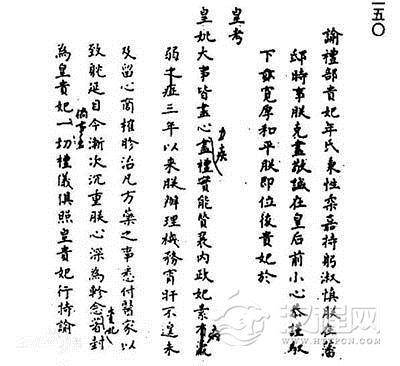 一五〇
諭禮部貴妃年氏秉性柔嘉持躬淑慎朕在藩
邸時事朕克盡敬誠在皇后前小心恭謹馭
下亦寬厚和平朕即位後貴妃於
皇考
皇妣大事皆盡心力疾盡禮實能贊襄内政妃素有病
弱之症三年以來朕辦理機務宵旰不遑未
及留心商榷胗治凡方藥之事悉付醫家以
致躭延目今漸次沉重朕心深為軫念貴妃着封
為皇貴妃倘事出一切禮儀俱照皇貴妃行特諭